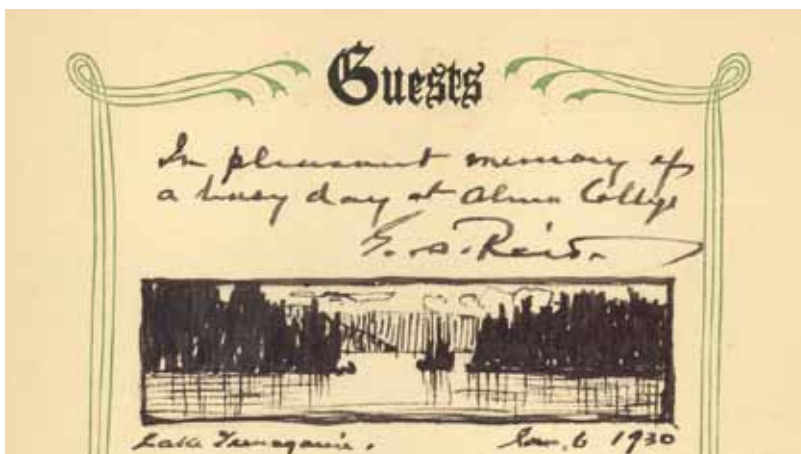 Guests
In pleasant memory of
a busy day at Alma College
G. A. Reid.
Lake Temagami. Jan. 6 1930